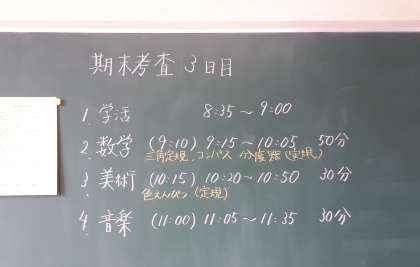 期末考査 3日目
1. 学活 8:35～9:00
2. 数学 (9:10) 9:15～10:05 50分
三角定規、コンパス 分度器 (定規)
3 美術 (10:15) 10:20～10:50 30分
色えんぴつ (定規)
4. 音楽 (11:00) 11:05～11:35 30分